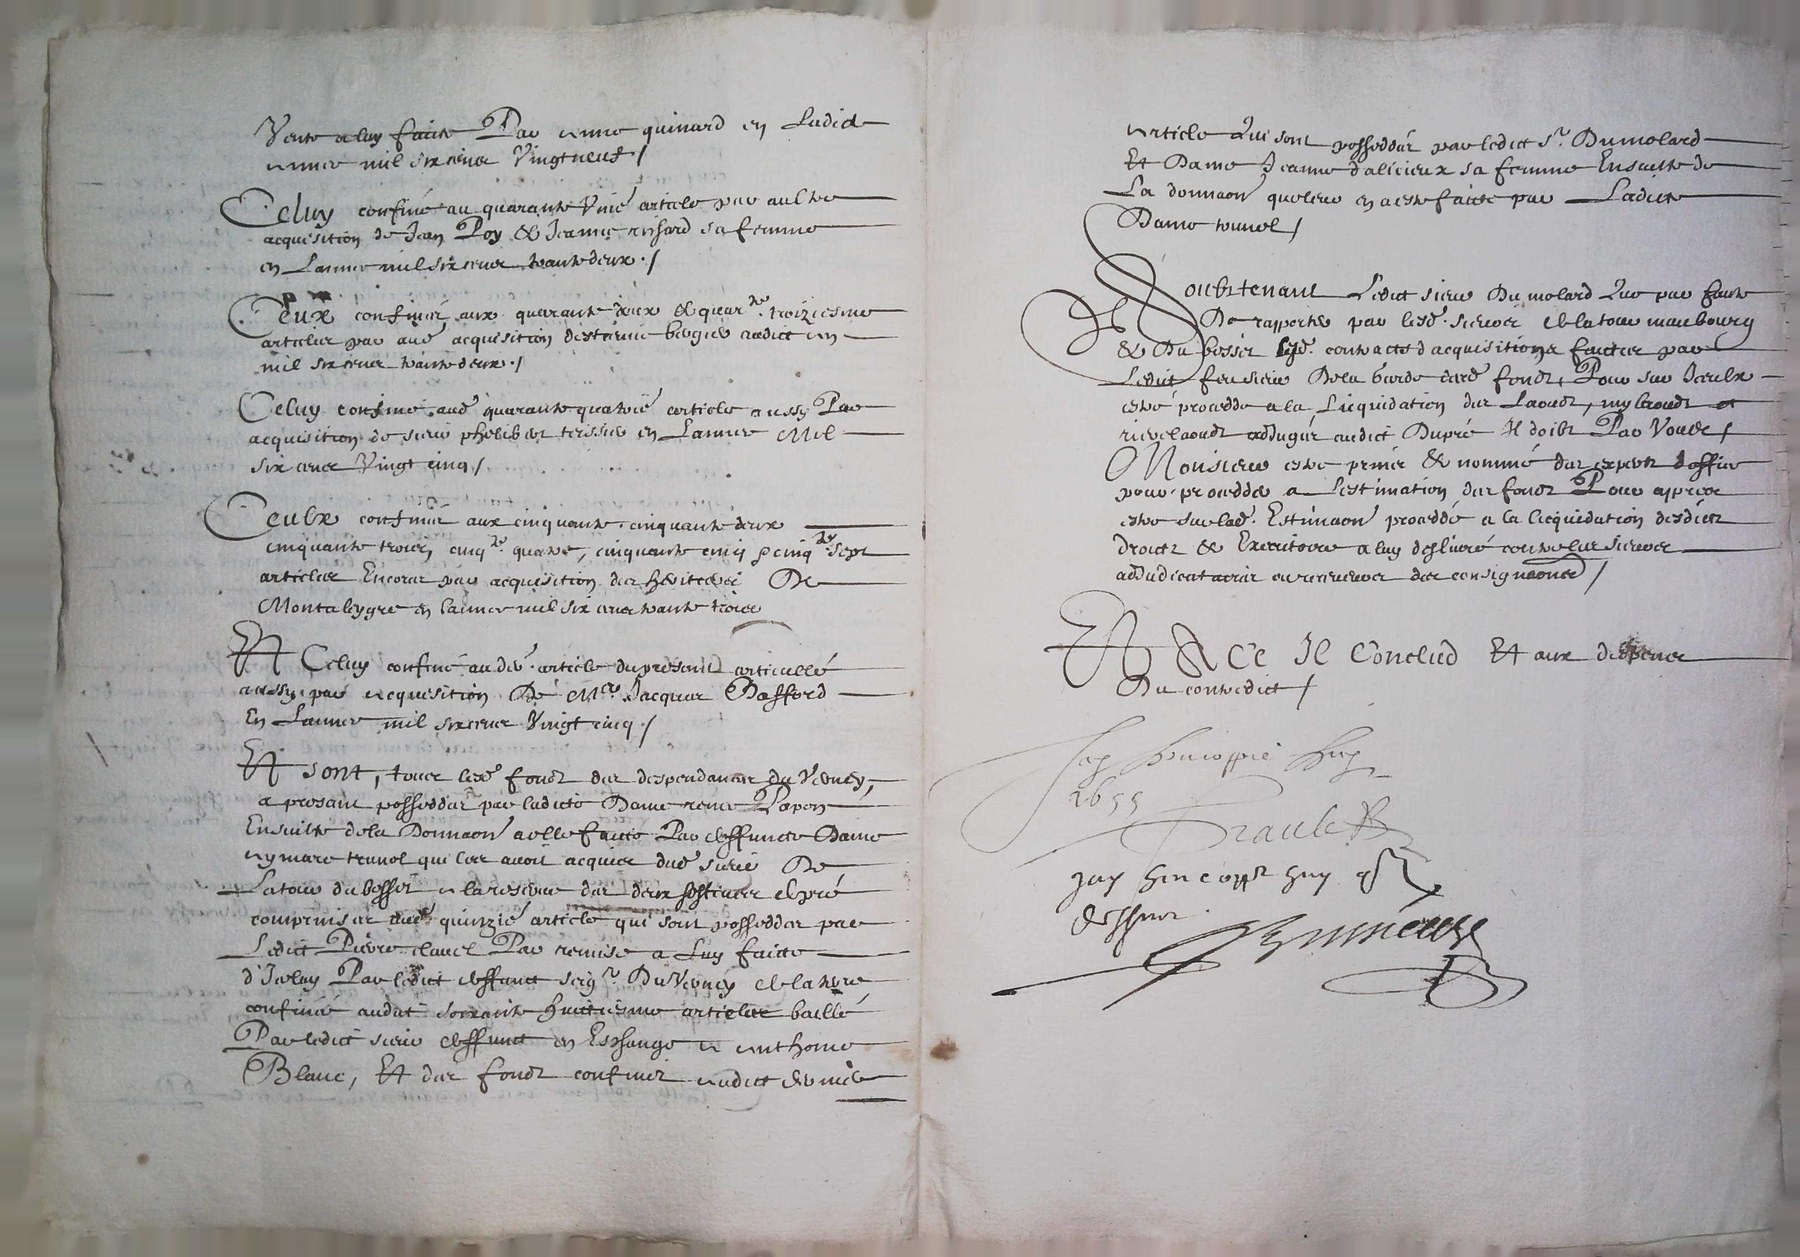 Vente a luy faicte Par anne guinard en Ladicte
annee mil six cens Vingt neuf /
Celuy confiné au quarante Vnie article par aultre
acquisition de Jean Roy & Jeanne richard sa femme
en Lannee mil six cens trante deux . /
Ceux confinés aux quarante deux & quarte troiziesme
articles par aue acquisition destienne bergier audict an
mil six cens trante deux . /
Celuy confiné aud quarante quatrie article aussy Par
acquisition de sieur phelibert teissier en Lannee Mil
six cens Vingt cinq /
Ceulx confinés aux cinquante cinquante deux
cinquante trois, cinqte quatre, cinquante cinq & cinqte sept
articles Encores par acquisition des heritiers De
Montaleygre en lannee mil six cens trante trois
Et Celuy confiné au der article du present articullé
aussy par acquisition De Mre Jacques Dafford
En Lannee mil six cens Vingt cinq . /
Et sont, tous lesd fondz des despendances du Verney,
a present possedder par ladicte Dame rene Lapon
Ensuitte de la Donnaon a elle faicte Par deffuncte Dame
aymare trunel qui les auoit acquis dud sieur De
Latour du bosset a la reserue des deux sestiers de pré
comprins au quinzie article qui sont posseddes par
Ledict Pierre clauel Par remise a Luy faicte
d'Jceluy Par ledict deffunct seigr Du Verney de la terre
confinée audict soixante huictiesme article baillé
Par ledict sieur deffunct en Eschange a anthoine
Blanc, Et des fondz confinés audict dernier
article Qui sont posseddés par ledict Sr. Dumolard
Et Dame Jeanne dalicieux sa femme Ensuitte de
La donnaon que leur en a este faicte par Ladicte
Dame trunel /
Et Soubztenant Ledict sieur Du molard Que par faute
De rapporter par lesd. sieurs de latour maubourg
& Du bosset lesd. contracts d'acquisitions faictes par
Ledict feu sieur De la barde desd fondz, Pour sur Jceulx
estre procedde a la Licquidation des Laoudz, mylaoudz et
rierelaoudz addugés audict Dupré Il doibt Par Vous /
Monsieur estre prins & nommé des expertz doffice
pour procedder a Lestimation des fondz Pour apres
estre sur lad. Estimaon procedde a la licquidation desdictz
droictz & Executoire a luy deslivré contre les sieurs
addudicataires ou receveurs des consignaons /
Et A Ce Il Conclud Et aux despens
Du contredict /
Jay heu coppie huy
1655
Jay heu coppie huy